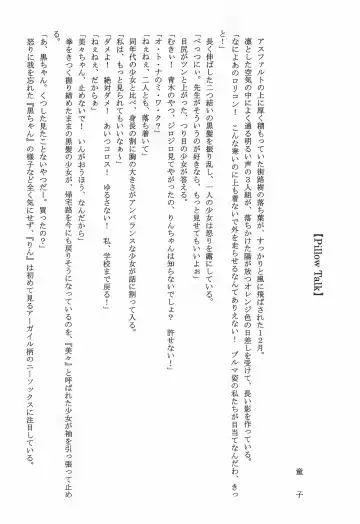 【Pillow Talk】
童 子
アスファルトの上に厚く積もっていた街路樹の落ち葉が、すっかりと風に飛ばされた12月。
凛とした空気の中によく通る明るい声の3人組が、落ちかけた陽が放つオレンジ色の日差しを受けて、長い影を作っている。
「なによあのロリコン！ こんな寒いのに上も着ないで外を走らせるなんてありえない！ ブルマ姿の私たちが目当てなんだわ、きっ
と！」
長く伸ばした二つ結いの黒髪を振り乱し、一人の少女は怒りを露にしている。
「べっつにぃ。先生がそういうの好きなら、もっと見せてもいいよぉ」
目尻がツンと上がった、つり目の少女が答える。
「むきぃ！ 青木のやつ、ジロジロ見てやがったの、りんちゃんは知らないの！？ 許せない！」
「オ・ト・ナのミ・ワ・ク？」
「ねぇねぇ、二人とも、落ち着いて」
同年代の少女と比べ、身長の割に胸の大きさがアンバランスな少女が話に割って入る。
「私は、もっと見られてもいいなぁ～」
「ダメよ！ 絶対ダメ！ あいつコロス！ ゆるさない！ 私、学校まで戻る！」
「ねぇねぇ、だからぁ」
「美々ちゃん、止めないで！ いんがおうほう、なんだから」
拳をきつく握り締めたままの黒髪の少女が、帰宅路を今にも戻りそうになっているのを、『美々』と呼ばれた少女が袖を引っ張って止め
る。
「あ、黒ちゃん。くつした見たことないやつだー。買ったの？」
怒りに我を忘れた『黒ちゃん』の様子など全く気にせず、『りん』は初めて見るアーガイル柄のニーソックスに注目している。